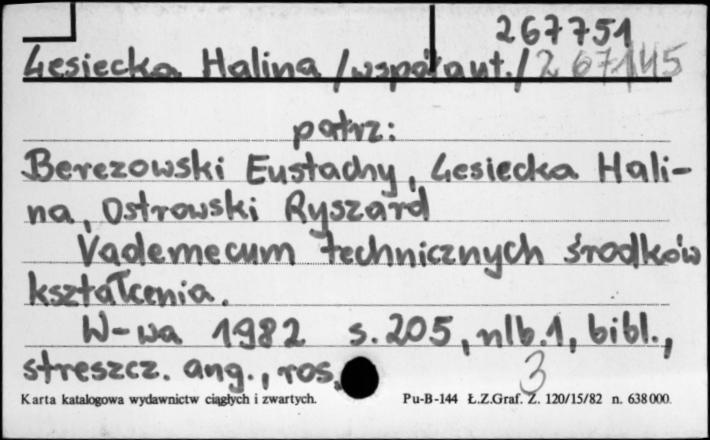 267751
Lesiecka Halina /współaut./ 267145
patrz:
Berezowski Eustachy, Lesiecka Hali-
na, Ostrowski Ryszard
Vademecum technicznych środków
kształcenia.
W-wa 1982 s. 205, nlb. 1, bibl.,
streszcz. ang., ros.
3
Karta katalogowa wydawnictw ciągłych i zwartych. Pu-B-144 Ł.Z.Graf. Z. 120/15/82 n. 638 000.